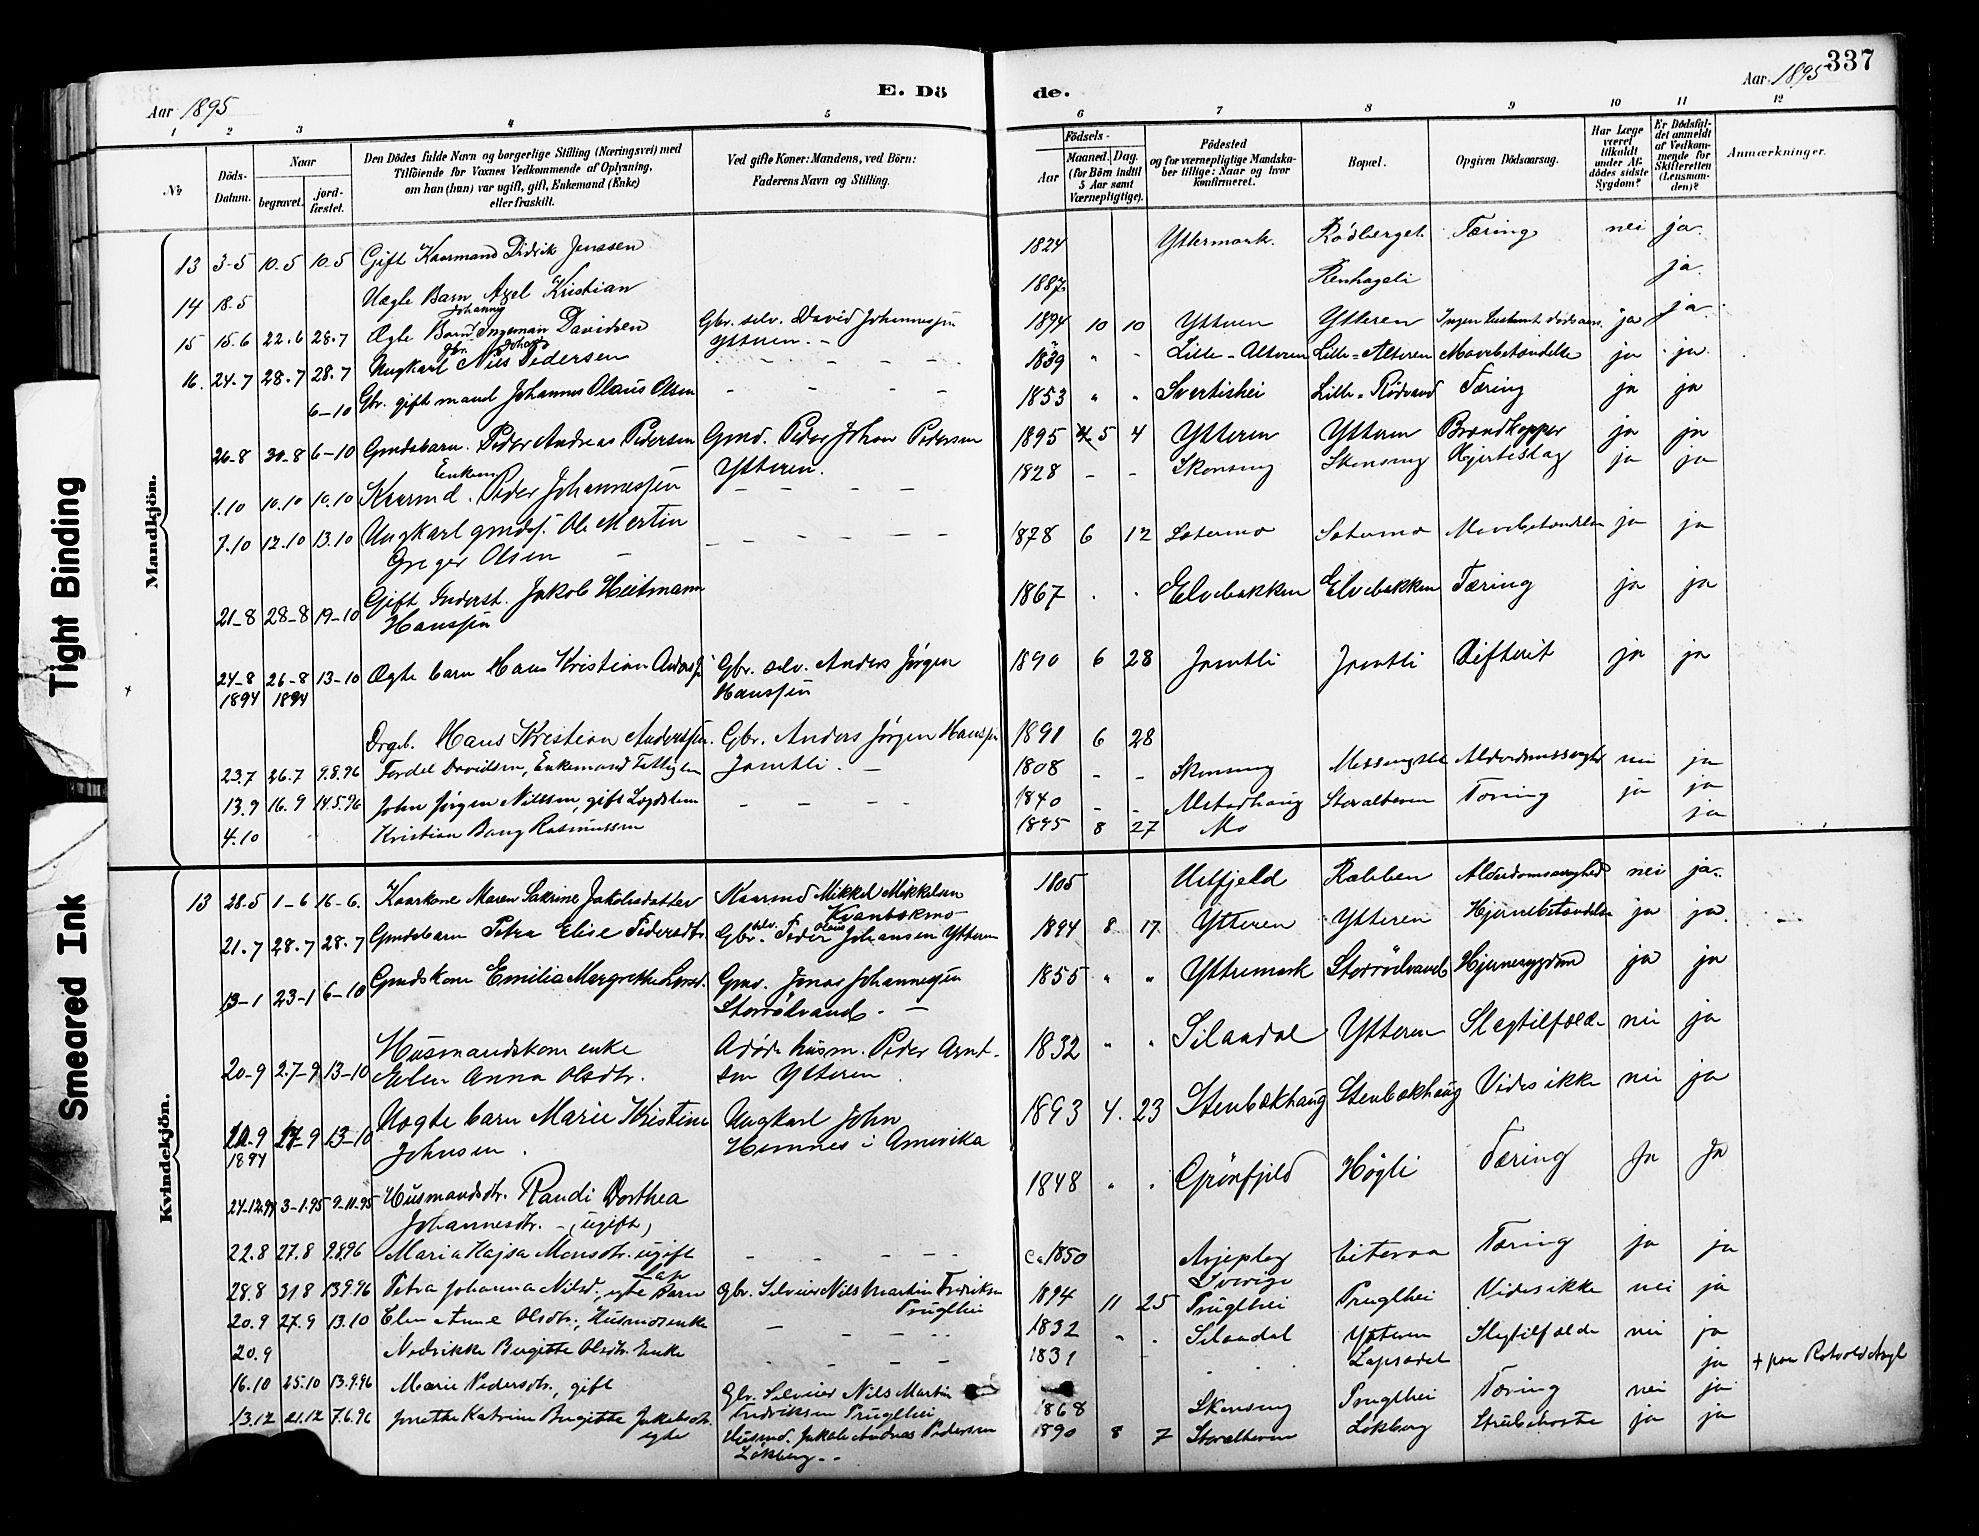 337
Aar 1895
E. Dö
de.
Aar 1895
1 2 3 4 5 6 7 8 9 10 11 12
No
Döds-Datum.
Naar
begravet.
jord-fæstet.
Den Dödes fulde Navn og borgerlige Stilling (Næringsvei) med
Tilföiende for Voxnes Vedkommende af Oplysning,
om han (hun) var ugift, gift, Enkemand (Enke)
eller fraskilt.
Ved gifte Koner: Mandens, ved Börn:
Faderens Navn og Stilling.
Födsels-
Aar
Maaned. Dag.
(for Börn indtil
5 Aar samt
Værnepligtige).
Födested
og for værnepligtige Mandska-
ber tillige: Naar og hvor
konfirmeret.
Bopæl.
Opgiven Dödsaarsag.
Har Læge
været
tilkaldt
under Af-
dödes sidste
Sygdom?
Er Dödsfal-
det anmeldt
af Vedkom-
mende for
Skifteretten
(Lensman-
den)?
Anmærkninger.
Mandkjön.
13 3-5 10.5 10.5 Gift Kaarmand Didrik Jenssen 1824 Yttermark. Rödberget Tæring nei ja.
14 18.5 Uægte Barn Axel Kristian 1887 ja.
15 15.6 22.6 28.7 Ægte Barn Johannes Ingeman Davidsen Gbr. selv. David Johannessen 1894 10 10 Ytteren Ytteren ja ja.
Ytteren. -
16. 24.7 28.7 28.7 Ungkarl Nils Pedersen 1839 " - Lille-Alteren Lille-Alteren Mavebetændelse ja ja.
6-10 Gbr. gift mand Johannes Olaus Olsen 1853 " " Svertishei Lille-Rödvand Tæring ja ja
26-8 30-8 6-10 Gmdsbarn. Peder Andreas Pedersen Gmd. Peder Johan Pedersen 1895 5 4 Ytteren Ytteren Brændkopper ja ja
Ytteren.
1.10 10.10 10.10 Kaarmd. Enkem Peder Johannessen 1828 - - Skonseng Skonseng Hjerteslag ja ja
7.10 12.10 13.10 Ungkarl gmds. Ole Mertin 1878 6 12 Sætermo Sætermo Mavebetændelse ja ja
Greger Olsen -
21-8 28-8 19-10 Gift Inderst. Jakob Heitmann 1867 . . Elvebakken Elvebakken Tæring ja ja
Hanssen
24-8 26-8 13-10 Ægte barn Hans Kristian Anders Gbr. selv. Anders Jørgen 1890 6 28 Jamtli Jamtli Difterit ja ja
1894 1894 Hanssen
Hans Kristian Anderssen. Gbr. Anders Jørgen Hanssen 1891 6 28
23.7 26.7 9.8.96 Tordel Davidsen, Enkemand Fattiglem Jamtli. - 1808 - - Skonseng Alderdomssvaghed nei ja
13.9 16.9 14.5.96 John Jørgen Nilssen, gift Lægdslem 1840 - - Storalteren Tæring ja ja
4.10 Kristian Bang Rasmussen 1895 8 27 Mo ja
Kvindekjön.
13 28.5 1-6 16-6. Kaarkone Maren Sakrine Jakobsdatter Kaarmd Mikkel Mikkelsen 1805 Ulfjeld Rabben Alderdomssvaghed nei ja.
Kvanbækmo
21.7 28.7 28.7 Gmdsbarn Petra Elise Pedersdtr. Gbr. selv. Peder Olaus Johansen Ytteren 1894 8 17 Ytteren Ytteren Hjernebetændelse ja ja.
13-1 23-1 6-10 Gmdskone Emilia Margrethe Larsd. Gmd. Jonas Johannessen 1855 " " Yttermark Storrödvand Hjernesygdom ja ja
Storrödvand. -
20-9 27-9 13-10 Husmandskone enke Afdøde husm. Peder Arnt- 1832 " " Silaadal Ytteren Slagtilfælde nei ja
Elen Anna Olsdtr. sen Ytteren.
9 9 13-10 Uægte barn Marie Kristine Ungkarl John 1893 4. 23 Stenbækhaug Stenbækhaug Vides ikke nei ja
1894 Johnsen. Hemnes i Amerika
24-12.94 3-1.95 9-11.95 Husmandsdtr. Randi Dorthea 1848 " . Grønfjeld Høgli Tæring Ja Ja
Johannesdtr. - (ugift)
22.8 27.8 9.8.96 Maria Kajsa Monsdtr. ugift ca 1850 Arjeplog Eiteraa Tæring ja ja
Lap Sverige
28.8 31.8 13.9.96 Petra Johanna Nilsd., egte Barn Gbr. Selveier Nils Martin Fredriksen 1894 11 25 Pruglhei Pruglhei Vides ikke nei ja
Pruglhei
20.9 27.9 13.10 Elen Anne Olsdtr., Husmdsenke 1832 " . Silaadal Ytteren Slagtilfælde nei ja
20.9 Nedrikke Birgitte Olsdtr. Enke 1831 ja + paa Rotvold Asyl
16.10 25.10 13.9.96 Marie Pedersdtr., gift Gbr. Selveier Nils Martin 1868 Skonseng Pruglhei Tæring nei ja
Fredriksen Pruglhei
13.12 21.12 7.6.96 Jonetha Katrine Birgitte Jakobsdtr. Husmd. Jakob Andreas Pedersen 1890 8 7 Storalteren Løkberg Strubehoste ja ja
egte Løkberg. -
Tight Binding
Smeared Ink